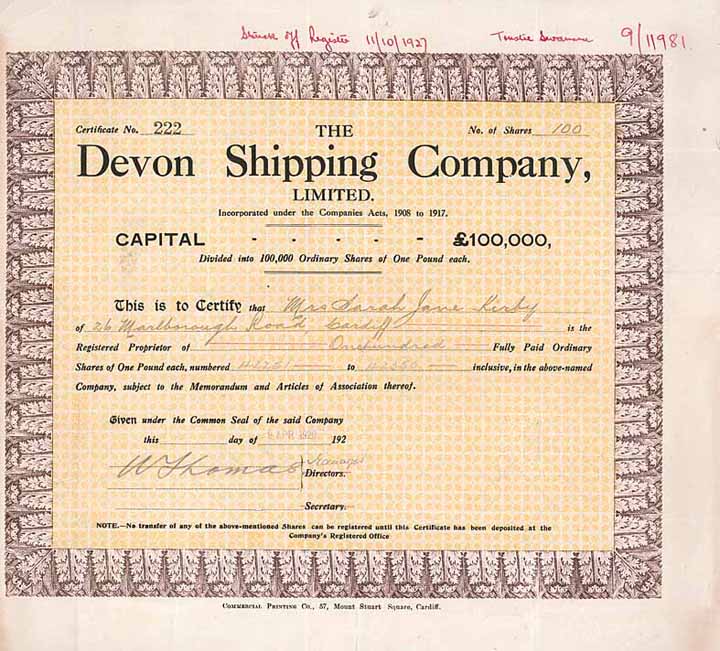 Struck off Register 11/10/1927 9/1/1981
Certificate No. 222 THE No. of Shares 100
Devon Shipping Company,
LIMITED.
Incorporated under the Companies Acts, 1908 to 1917.
CAPITAL - - - - - £100,000,
Divided into 100,000 Ordinary Shares of One Pound each.
This is to Certify that Mrs Sarah Jane Kirby
of 26 Marlborough Road, Cardiff is the
Registered Proprietor of One hundred Fully Paid Ordinary
Shares of One Pound each, numbered to inclusive, in the above-named
Company, subject to the Memorandum and Articles of Association thereof.
Given under the Common Seal of the said Company
this day of APR 192
W Thomas Manager
Directors.
Secretary.
NOTE.—No transfer of any of the above-mentioned Shares can be registered until this Certificate has been deposited at the
Company's Registered Office
COMMERCIAL PRINTING CO., 57, Mount Stuart Square, Cardiff.